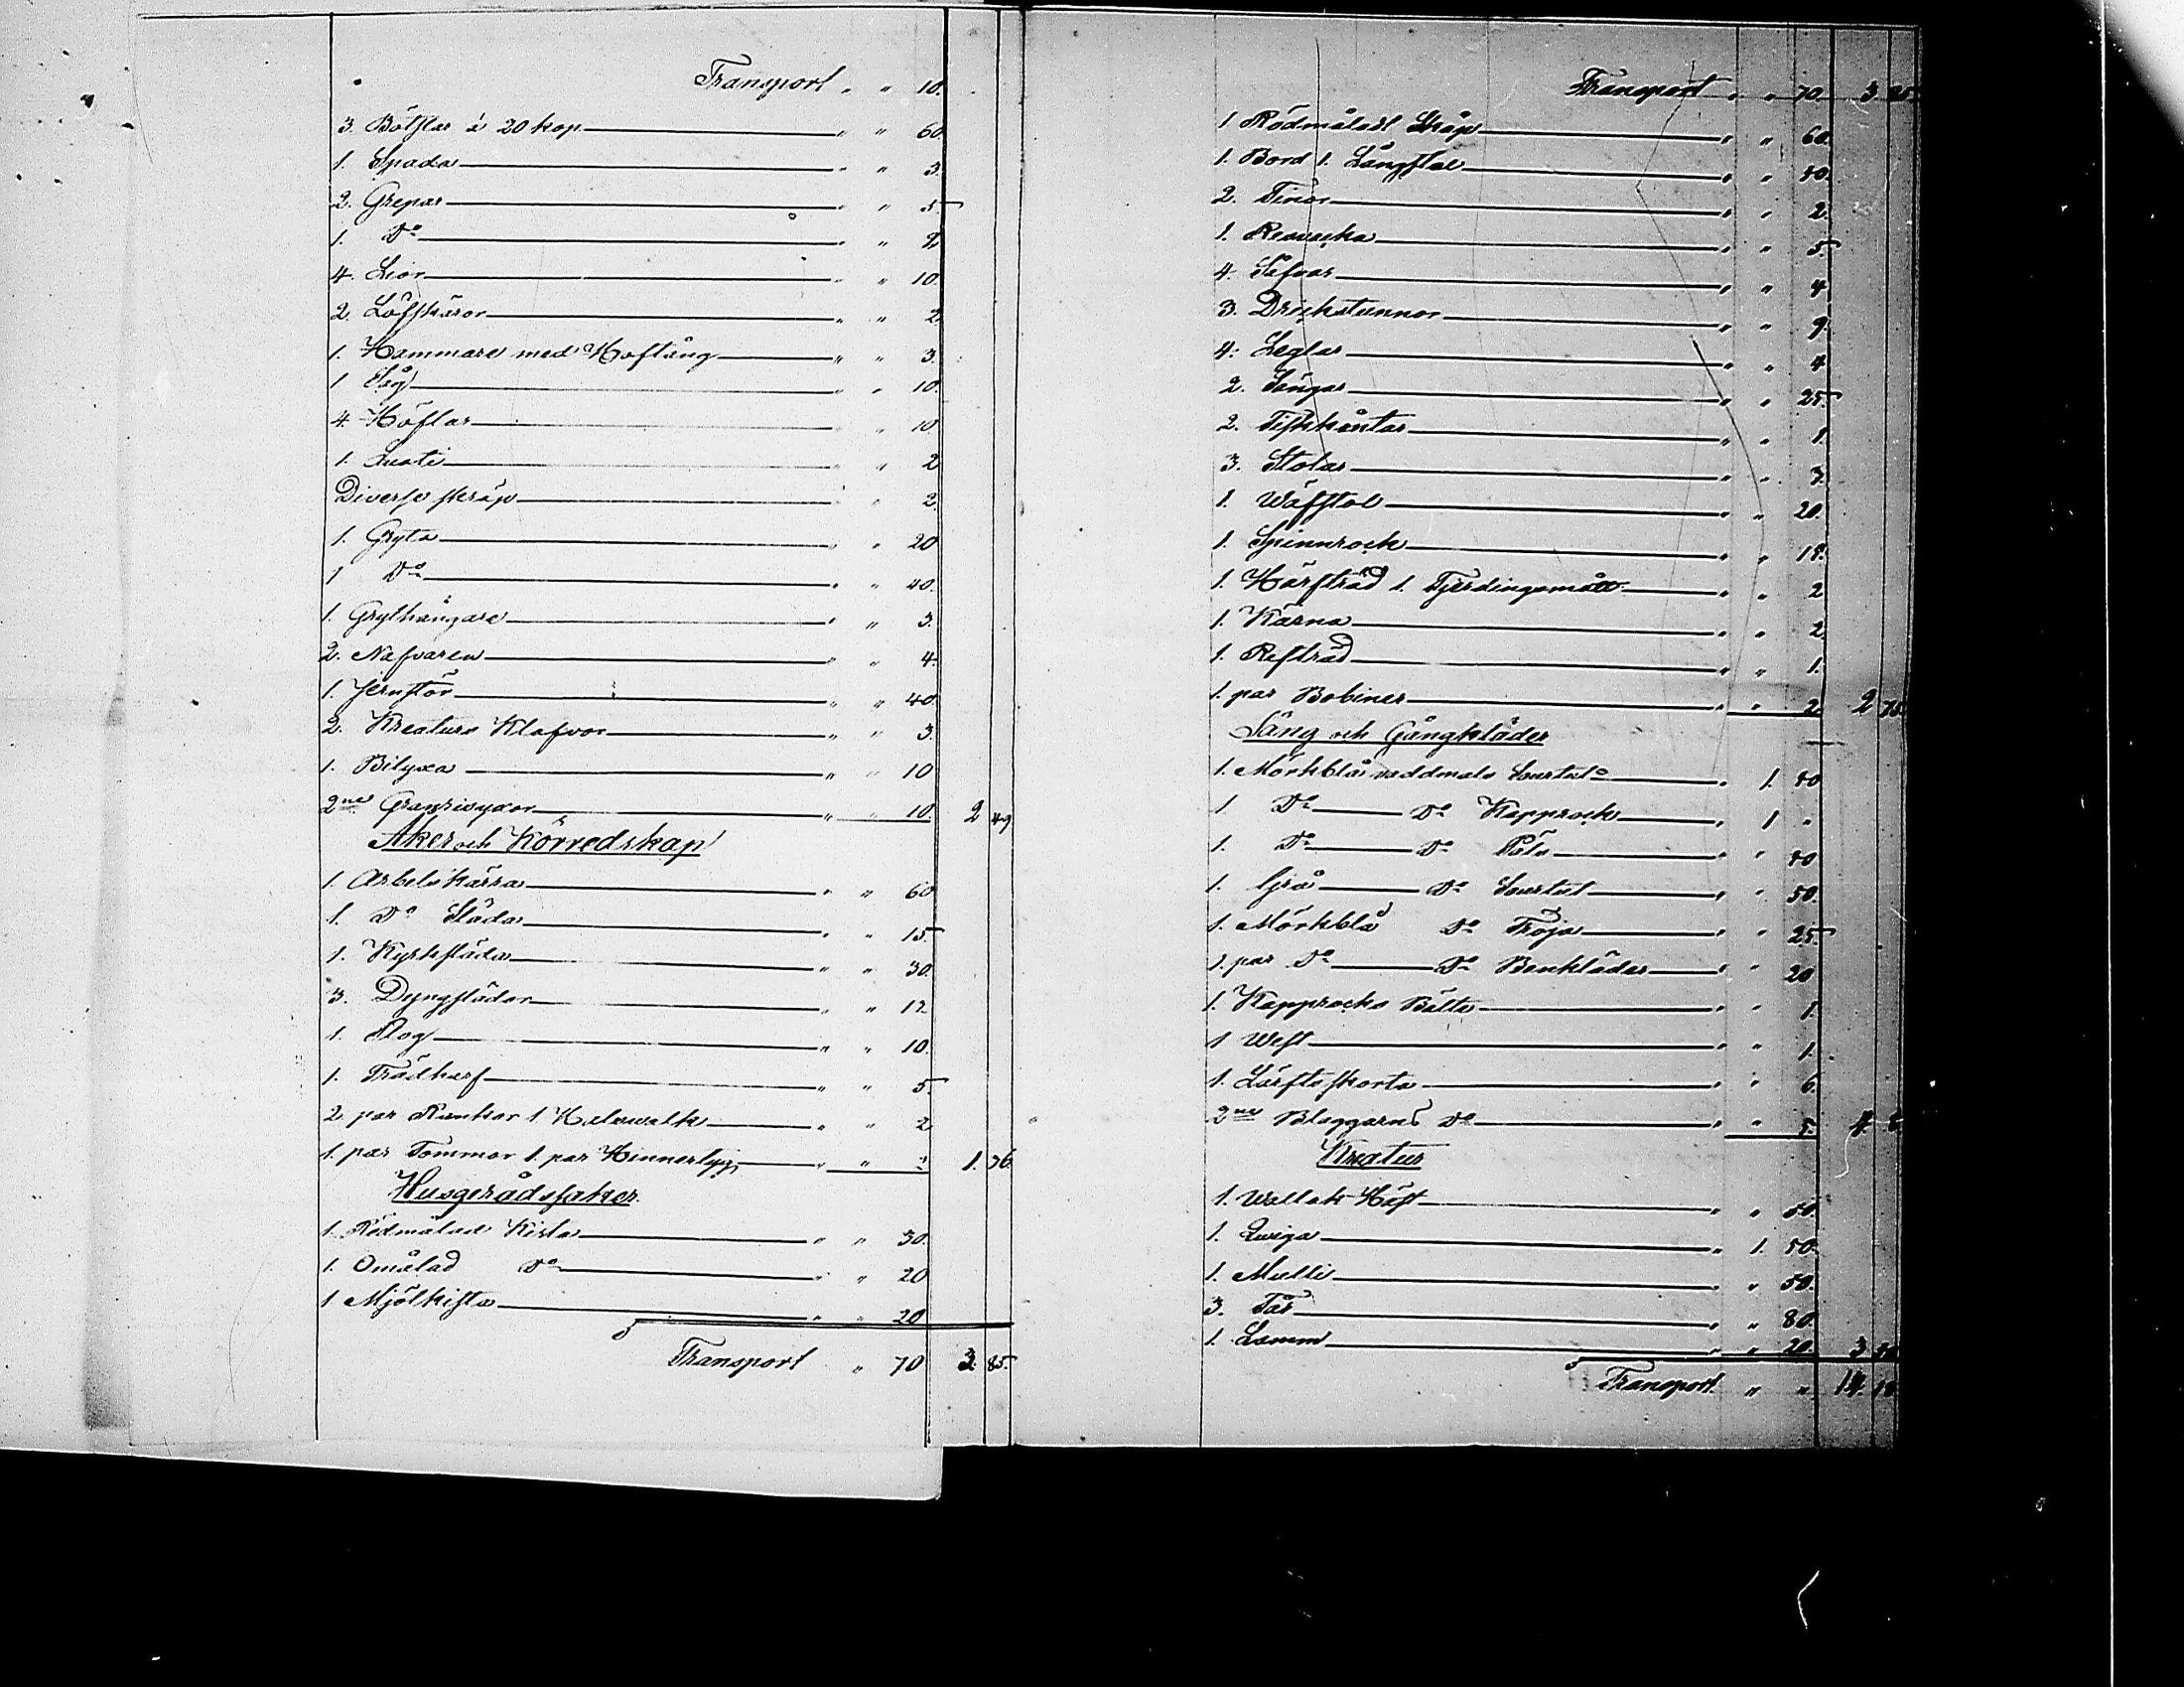 Transport " " 10.
3. Bötflar à 20 kop. " " 60
1. Spada " " 3.
2. Grepar " " 5
1. D:o " " 2
4. Lior " " 10.
2. Löffkäror " " 2
1. Hammare med Hoftång " " 3.
1 Såg " " 10.
4 Höflar " 10
1. " " 2
Diverse skräp " 2.
1. Gryta " " 20
1 D:o " " 40.
1. Grythängare " " 3.
2. Nafvaren " " 4.
1. Jernstör " " 40
2. Kreaturs Klafvor " " 3.
1. Bilyxa " " 10
2ne Granrisyxor " " 10. 2 49
Åker och Körredskap
1. Arbetskärra " " 60
1. D:o Släda " " 15
1. Kyrksläda " " 30.
3. Dyngslädor " " 12
1. Plog " " 10.
1. Trädharf " " 5
2 par Rankor 1 " " 2
1. par Tömmar 1. par " " 1. 36.
Husgerådssaker
1. Rödmålad Kista " " 30.
1. Omålad D:o " " 20
1 Mjölkista " " 20
Transport " 70 3. 85.
Transport " " 70 3 85.
1 Rödmåladt Skåp " " 60.
1. Bord 1. Långstol " " 40.
2. Tinor " " 2.
1. " " 5
4. Såfvar " " 4
3. Drickatunnor " " 9
4. Leglar " " 4
2. Sängar " " 25
2. " " 1.
3. Stolar " " 3.
1. Wäfstol " " 20.
1. Spinnrock " " 15.
1. Härfträd 1. Tjerdingsmått " " 2
1. Kärna " " 2
1. Refträd " " 1.
1. par Bobiner " " 2 2 75.
Säng och Gångkläder
1. Mörkblå vaddmals Surtut " 1. 40
1 D:o D:o Kapprock " 1 "
1. D:o D:o Päls " " 40
1. Grå D:o Surtut " " 50.
1. Mörkblå D:o Tröja " " 25
1. par D:o D:o Benkläder " " 20
1. Kapprocks Bälte " " 1.
1 West " " 1.
1. Lärfts skorta " " 6
2ne Blaggarns D:o " " 5.
Kreatur
1. Wallak Häst " " 50.
1. Qwiga " 1. 50.
1. Mulli " " 50.
3. Får " " 80.
1. Lamm " " 20. 3 50
Transport " " 14.